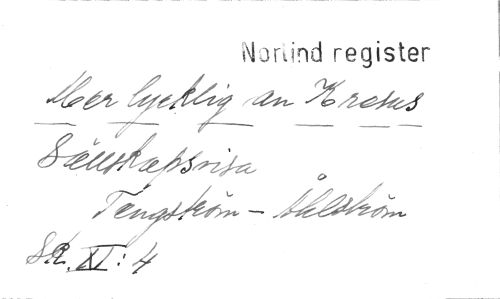 Norlind register
Mer lycklig än Kresus
Sällskapsvisa
Tengström – Åhlström
SR. XI: 4